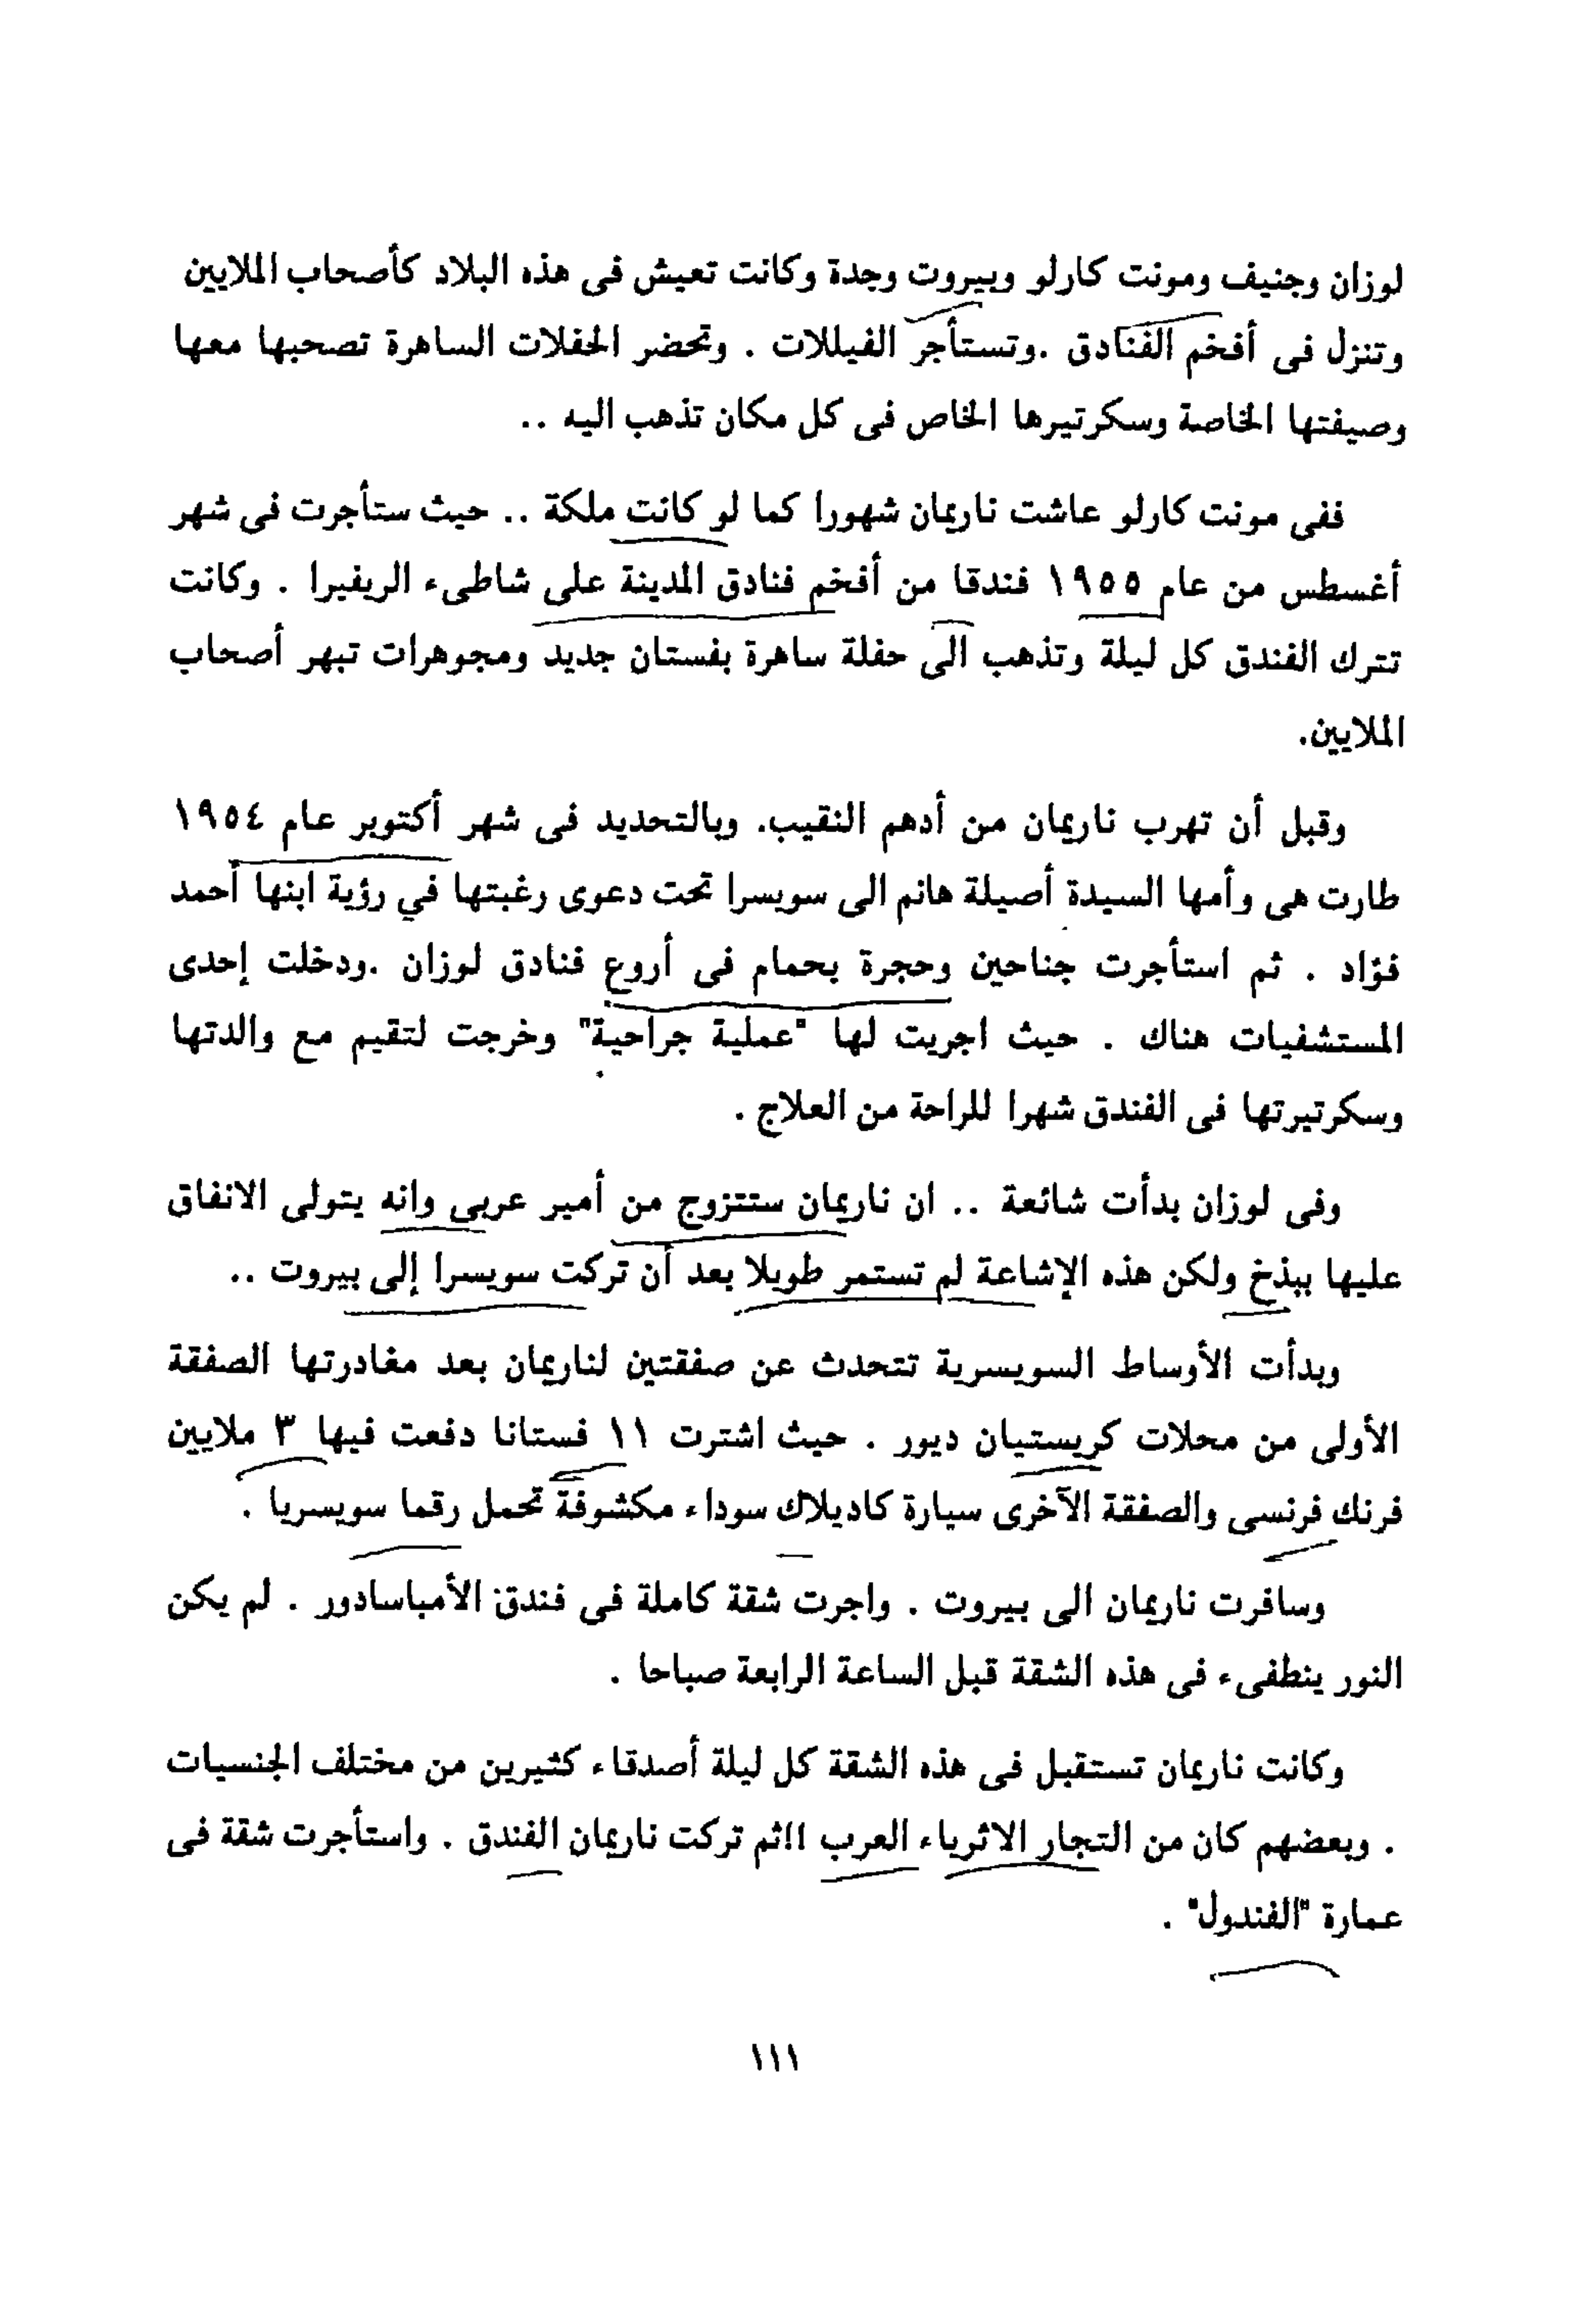 لوزان وجنيف ومونت كارلو وبيروت وجدة وكانت تعيش فى هذه البلاد كأصحاب الملايين
وتنزل فى أفخم الفنادق .وتستأجر الفيللات . وتحضر الحفلات الساهرة تصحبها معها
وصيفتها الخاصة وسكرتيرها الخاص فى كل مكان تذهب اليه ..
ففى مونت كارلو عاشت ناريمان شهورا كما لو كانت ملكة .. حيث ستأجرت فى شهر
أغسطس من عام ١٩٥٥ فندقا من أفخم فنادق المدينة على شاطىء الريفيرا . وكانت
تترك الفندق كل ليلة وتذهب الى حفلة ساهرة بفستان جديد ومجوهرات تبهر أصحاب
الملايين.
وقبل أن تهرب ناريمان من أدهم النقيب. وبالتحديد فى شهر أكتوبر عام ١٩٥٤
طارت هى وأمها السيدة أصيلة هانم الى سويسرا تحت دعوى رغبتها في رؤية ابنها أحمد
فؤاد . ثم استأجرت جناحين وحجرة بحمام فى أروع فنادق لوزان .ودخلت إحدى
المستشفيات هناك . حيث اجريت لها "عملية جراحية" وخرجت لتقيم مع والدتها
وسكرتيرتها فى الفندق شهرا للراحة من العلاج .
وفى لوزان بدأت شائعة .. ان ناريمان ستتزوج من أمير عربى وانه يتولى الانفاق
عليها ببذخ ولكن هذه الإشاعة لم تستمر طويلا بعد أن تركت سويسرا إلى بيروت ..
وبدأت الأوساط السويسرية تتحدث عن صفقتين لناريمان بعد مغادرتها الصفقة
الأولى من محلات كريستيان ديور . حيث اشترت ١١ فستانا دفعت فيها ٣ ملايين
فرنك فرنسى والصفقة الآخرى سيارة كاديلاك سوداء مكشوفة تحمل رقما سويسريا .
وسافرت ناريمان الى بيروت . واجرت شقة كاملة فى فندق الأمباسادور . لم يكن
النور ينطفىء فى هذه الشقة قبل الساعة الرابعة صباحا .
وكانت ناريمان تستقبل فى هذه الشقة كل ليلة أصدقاء كثيرين من مختلف الجنسيات
. وبعضهم كان من التجار الاثرياء العرب !!ثم تركت ناريمان الفندق . واستأجرت شقة فى
عمارة "الفندول" .
١١١